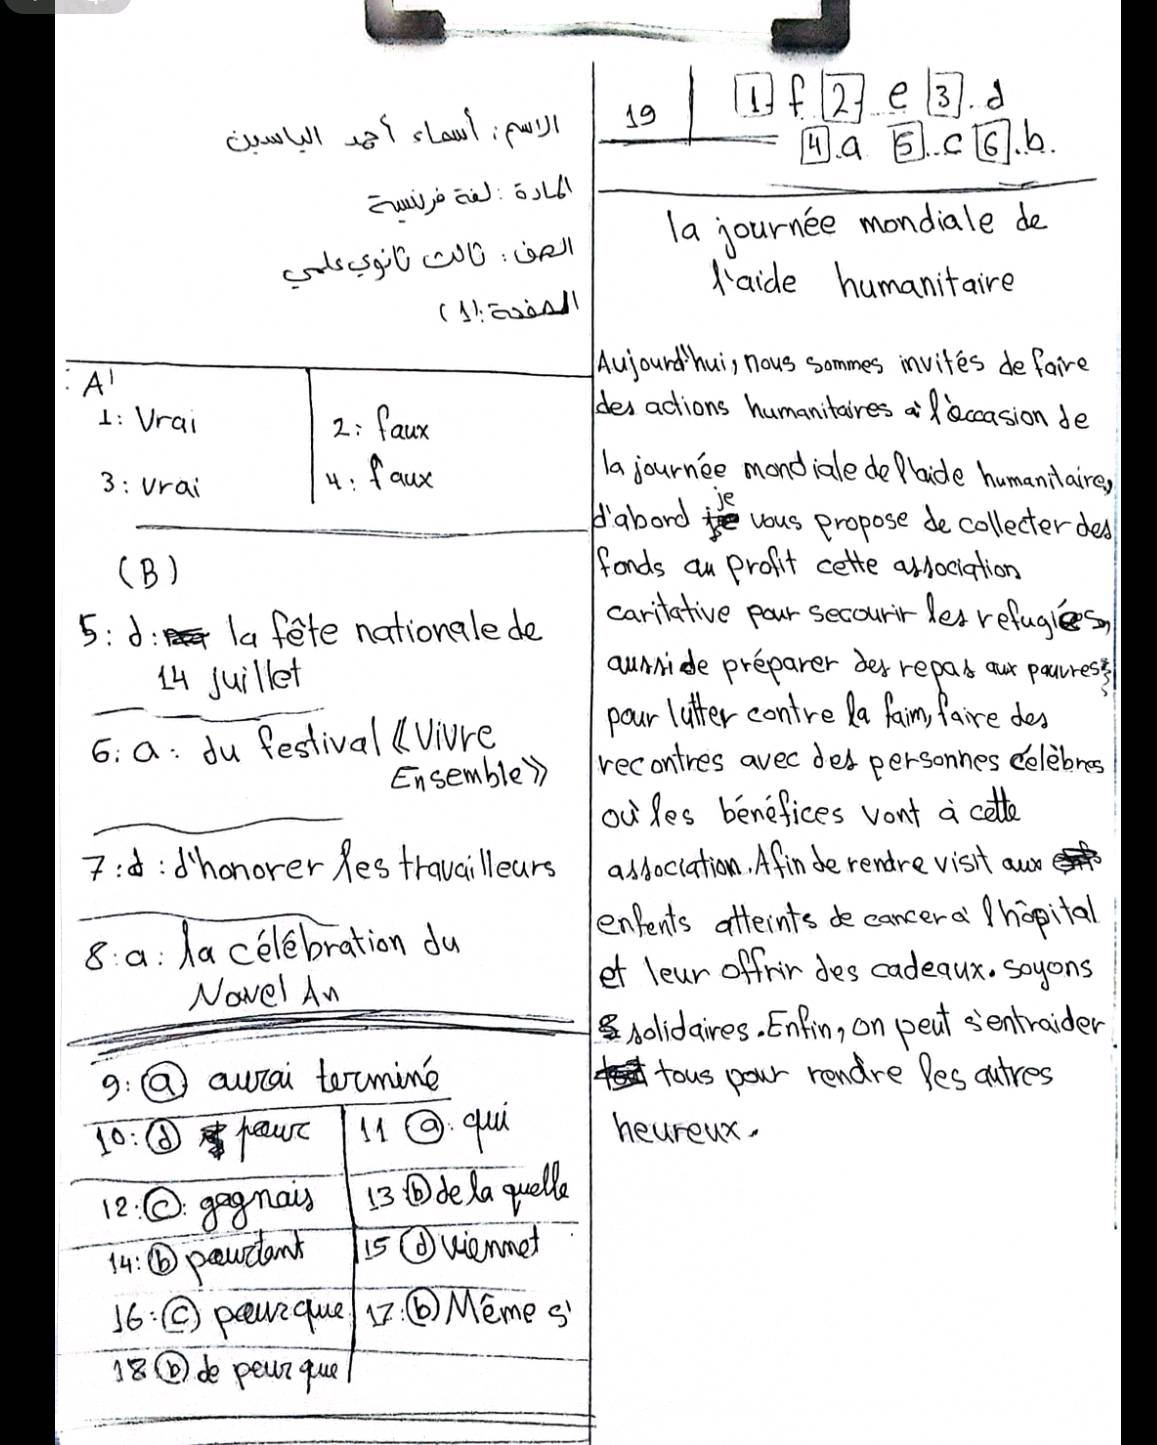 الاسم: أسماء أحمد الياسين
المادة: لغة فرنسية
الصف: ثالث ثانوي علمي
الصفحة: (1)
A
1: Vrai
2: faux
3: vrai
4: faux
(B)
5: d: la fête nationale de
14 juillet
6: a: du festival «Vivre
Ensemble»
7: d: d'honorer les travailleurs
8: a: la célébration du
Novel An
9: a aurai terminé
10: d pour
11 a. qui
12: c: gagnais
13 b de la quelle
14: b pourtant
15 d viennet
16: c pour que
17: b Même s'
18 b de peur que
19
1. f 2. e 3. d
4. a 5. c 6. b.
la journée mondiale de
l'aide humanitaire
Aujourd'hui, nous sommes invités de faire
des actions humanitaires à l'occasion de
la journée mondiale de l'aide humanitaire,
d'abord je vous propose de collecter des
fonds au profit cette association
caritative pour secourir les refugiées,
aussi de préparer des repas aux pauvres
pour lutter contre la faim, faire des
recontres avec des personnes célèbres
où les bénéfices vont à cette
association. Afin de rendre visit aux
enfents atteints de cancer à l'hôpital
et leur offrir des cadeaux. soyons
solidaires. Enfin, on peut s'entraider
tous pour rendre les autres
heureux.